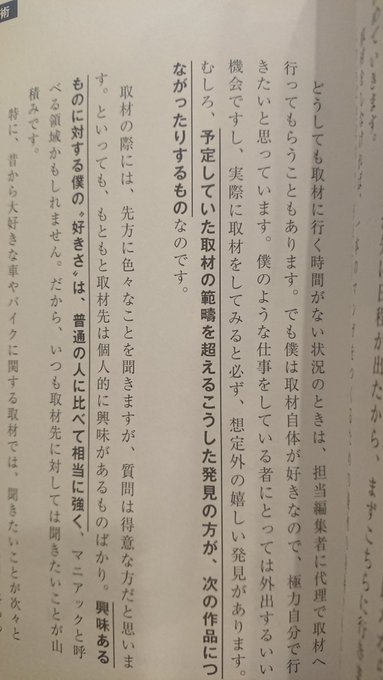 術
得が出たから、まずこちらに行き
どうしても取材に行く時間がない状況のときは、担当編集者に代理で取材へ
行ってもらうこともあります。でも僕は取材自体が好きなので、極力自分で行
きたいと思っています。僕のような仕事をしている者にとっては外出するいい
機会ですし、実際に取材をしてみると必ず、想定外の嬉しい発見があります。
むしろ、予定していた取材の範疇を超えるこうした発見の方が、次の作品につ
ながったりするものなのです。
取材の際には、先方に色々なことを聞きますが、質問は得意な方だと思いま
す。といっても、もともと取材先は個人的に興味があるものばかり。興味ある
ものに対する僕の〝好きさ〟は、普通の人に比べて相当に強く、マニアックと呼
べる領域かもしれません。だから、いつも取材先に対しては聞きたいことが山
積みです。
特に、昔から大好きな車やバイクに関する取材では、聞きたいことが次々と